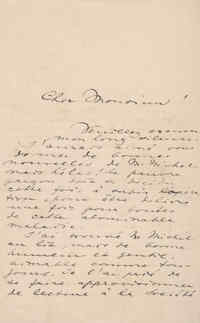 Cher Monsieur!
Veuillez excuser
mon long silence
J'aurais aimé vous
donner de bonnes
nouvelles de Mr Michel
mais hélas! le pauvre
garçon
cette fois à
pour être délivré
une fois pour toutes
de cette abominable
maladie.
J'ai trouvé Mr Michel
au lit mais de bonne
humeur et gentil,
aimable comme tou-
jours. Je l'ai prié de
se faire
de lecture à la Société